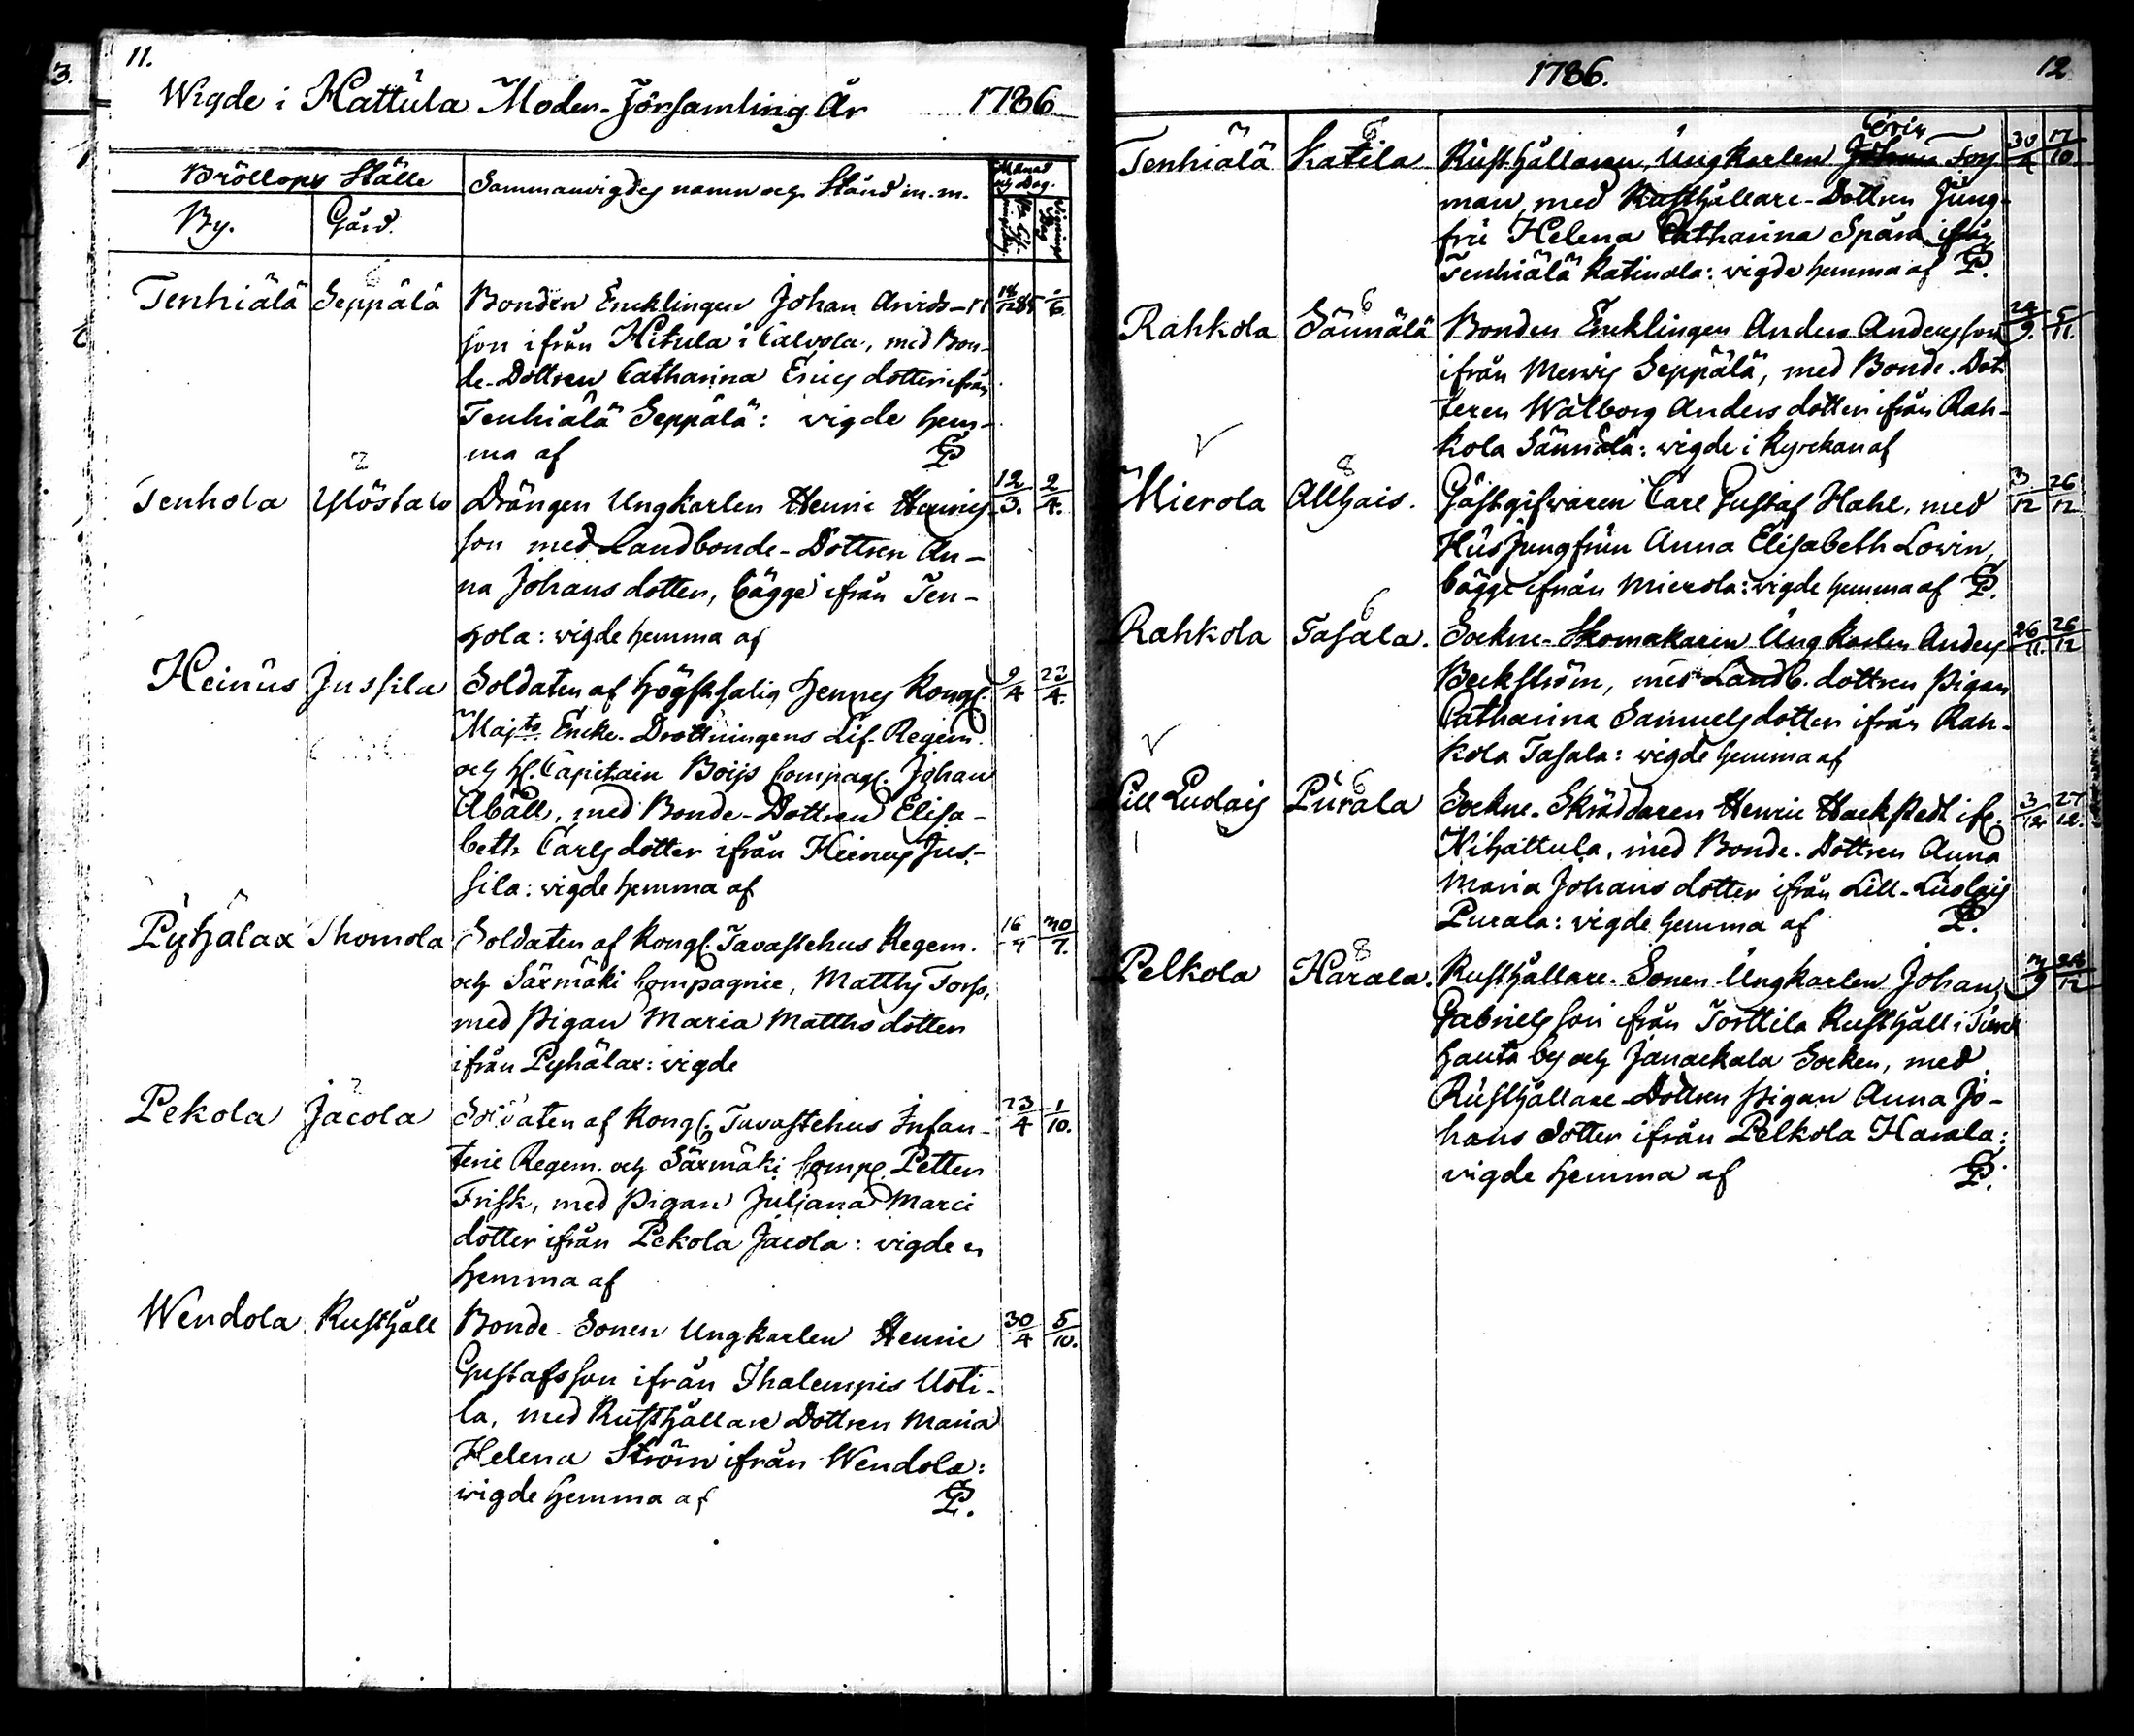 11.
Wigde i Hattula Moder-Församling År 1786.
Bröllops Ställe
Sammanwigdes namn och Stånd m.m.
Månad och Dag.
By. Gård.
Tenhiälä Seppälä Bonden Encklingen Johan Arvids-
son ifrån Hitula i Calvola, med Bon-
de-Dottren Catharina Erics dotter ifrån
Tenhiälä Seppälä: vigde hem-
ma af P
Tenhola Ylöstalo Drängen Ungkarlen Henric Henrics- 12/3. 2/4.
son med Landbonde-Dottren An-
na Johans dotter, bägge ifrån Ten-
hola: vigde hemma af
Heinus Jussila Soldaten af Högstsalig Hennes Kongl. 9/4 23/4.
Majts. Encke-Drottningens Lif-Regem.
och H. Capitain Boijs Compagn. Johan
Aball, med Bonde-Dottren Elisa-
beth Carls dotter ifrån Heinus Jus-
sila: vigde hemma af
Pyhälax Thomola Soldaten af Kongl. Tavastehus Regem. 16/4 30/7.
och Särmäki Compagnie, Matths Forss,
med Pigan Maria Matths dotter
ifrån Pyhälax: vigde
Pekola Jacola Soldaten af Kongl. Tavastehus Infan- 23/4 1/10.
terie Regem. och Särmäki Comp. Petter
Frisk, med Pigan Juliana Marci
dotter ifrån Pekola Jacola: vigde
hemma af
Wendola Rusthåll Bonde-Sonen Ungkarlen Henric 30/4 5/10.
Gustafsson ifrån Ihalempis Uoti-
la, med Rusthållare Dottren Maria
Helena Ström ifrån Wendola:
vigde hemma af P.
1786. 12
Tenhiälä Katila Rusthållaren, Ungkarlen Fors 30/4 17/10.
man med Rusthållare-Dottren Jung-
fru Helena Catharina Spåra ifrån
Tenhiälä Katinala: vigde hemma af P.
Rahkola Sännälä Bonden Encklingen Anders Andersson 24/9. 5/11.
ifrån Merwis Seppälä, med Bonde-Dot-
teren Walborg Anders dotter ifrån Rah-
kola Sännälä: wigde i Kyrckan af
Mierola Allgais. Gästgifwaren Carl Gustaf Hahl, med 3/12 26/12
Husjungfrun Anna Elisabeth Lowin,
bägge ifrån Mierola: vigde hemma af P.
Rahkola Tasala. Sockne-Skomakaren Ungkarlen Anders 26/11. 26/12
Beckström, med Landb. dottren Pigan
Catharina Samuels dotter ifrån Rah-
kola Tasala: wigde hemma af
Lill Luolais Purala Sockne-Skräddaren Henric Hackstedt ifr. 3/12 27/12.
Nihattula, med Bonde-Dottren Anna
Maria Johans dotter ifrån Lill-Luolais
Purala: vigde hemma af P.
Pelkola Harala. Rusthållare-Sonen Ungkarlen Johan
Gabriels son ifrån Torttila Rusthåll i
hauta by och Janackala Socken, med
Rusthållare-Dottren Pigan Anna Jo-
hans dotter ifrån Pelkola Harala:
vigde hemma af P.